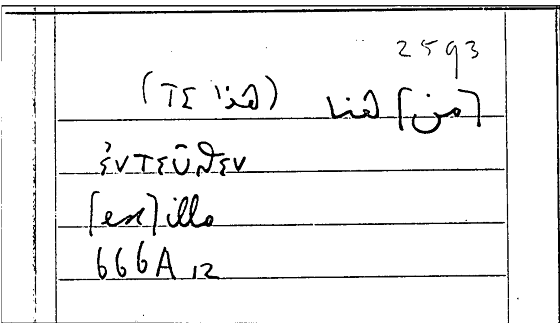 2593
[من] هنا (هذا τε)
ἐντεῦθεν
[ex] illo
666A 12